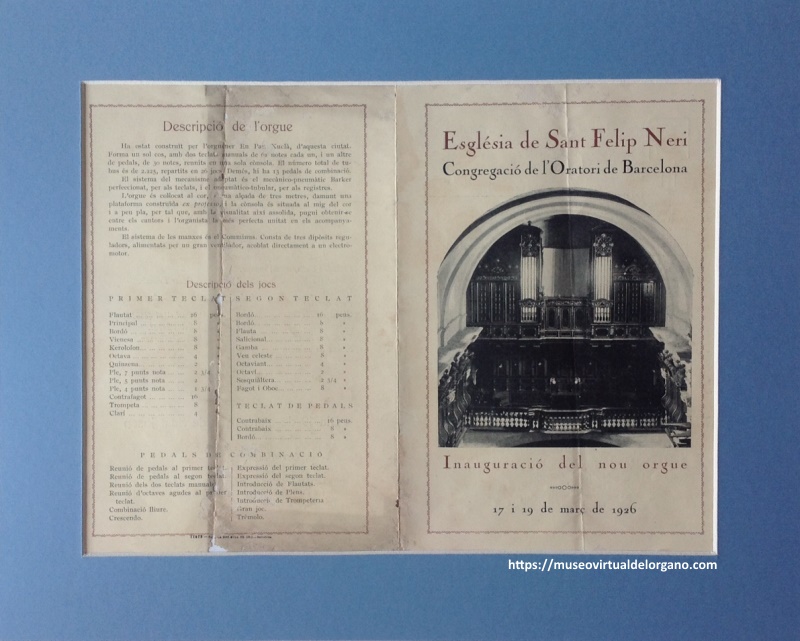 Descripció de l'orgue
Ha estat construit per l'orguener En Pau Xuclà, d'aquesta ciutat.
Forma un sol cos, amb dos teclats manuals de 61 notes cada un, i un altre
de pedals, de 30 notes, reunits en una sola cònsola. El número total de tu-
bos és de 2.225, repartits en 30 jocs. Demés, hi ha 13 pedals de combinació.
El sistema del mecanisme adoptat és el mecànico-pneumàtic Barker
perfeccionat, per als teclats, i el pneumàtic-tubular, per als registres.
L'orgue és col·locat al cor, a una alçada de tres metres, damunt una
plataforma construïda i la cònsola és situada al mig del cor
i a peu pla, per tal que, amb la visualitat així assolida, pugui obtenir-se
entre els cantors i l'organista la més perfecta unitat en els acompanya-
ments.
El sistema de les manxes és el Cummings. Consta de tres dipòsits regu-
ladors, alimentats per un gran ventilador, acoblat directament a un electro-
motor.
Descripció dels jocs
PRIMER TECLAT
Flautat 16 pens.
Principal 8 »
Bordó 8
Vienesa 8
Keraulon 8
Octava 4
Quinzena 2
Ple, 7 punts nota 2 3/4
Ple, 5 punts nota 2
Ple, 4 punts nota 1 3/4
Contrafagot 16
Trompeta 8
Clarí 4
SEGON TECLAT
Bordó 16 pens.
Bordó 8 »
Flauta 8 »
Salicional 8 »
Gamba 8 »
Veu celeste 8 »
Octaviant 4 »
Octaví 2 »
Sesquiàltera 2 3/4 »
Fagot i Oboe 8 »
TECLAT DE PEDALS
Contrabaix 16 pens.
Contrabaix 8 »
Bordó 8 »
PEDALS DE COMBINACIÓ
Reunió de pedals al primer teclat.
Reunió de pedals al segon teclat.
Reunió dels dos teclats manuals.
Reunió d'octaves agudes al primer
teclat.
Combinació lliure.
Crescendo.
Expressió del primer teclat.
Expressió del segon teclat.
Introducció de Flautats.
Introducció de Plens.
Introducció de Trompeteria
Gran joc.
Trèmolo.
Església de Sant Felip Neri
Congregació de l'Oratori de Barcelona
Inauguració del nou orgue
17 i 19 de març de 1926
https://museovirtualdelorgano.com